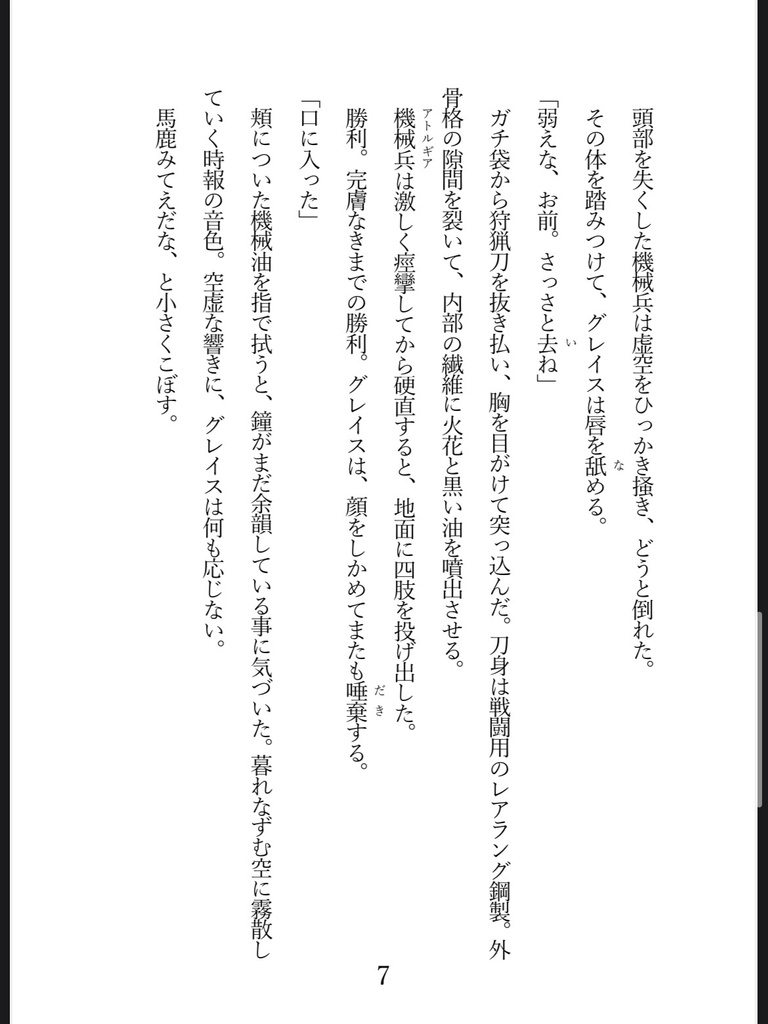 頭部を失くした機械兵は虚空をひっかき掻き、どうと倒れた。
その体を踏みつけて、グレイスは唇を舐める。
な
「弱えな、お前。さっさと去ね」
い
ガチ袋から狩猟刀を抜き払い、胸を目がけて突っ込んだ。刀身は戦闘用のレアラング鋼製。外
骨格の隙間を裂いて、内部の繊維に火花と黒い油を噴出させる。
機械兵は激しく痙攣してから硬直すると、地面に四肢を投げ出した。
アトルギア
勝利。完膚なきまでの勝利。グレイスは、顔をしかめてまたも唾棄する。
だき
「口に入った」
頬についた機械油を指で拭うと、鐘がまだ余韻している事に気づいた。暮れなずむ空に霧散し
ていく時報の音色。空虚な響きに、グレイスは何も応じない。
馬鹿みてえだな、と小さくこぼす。
7